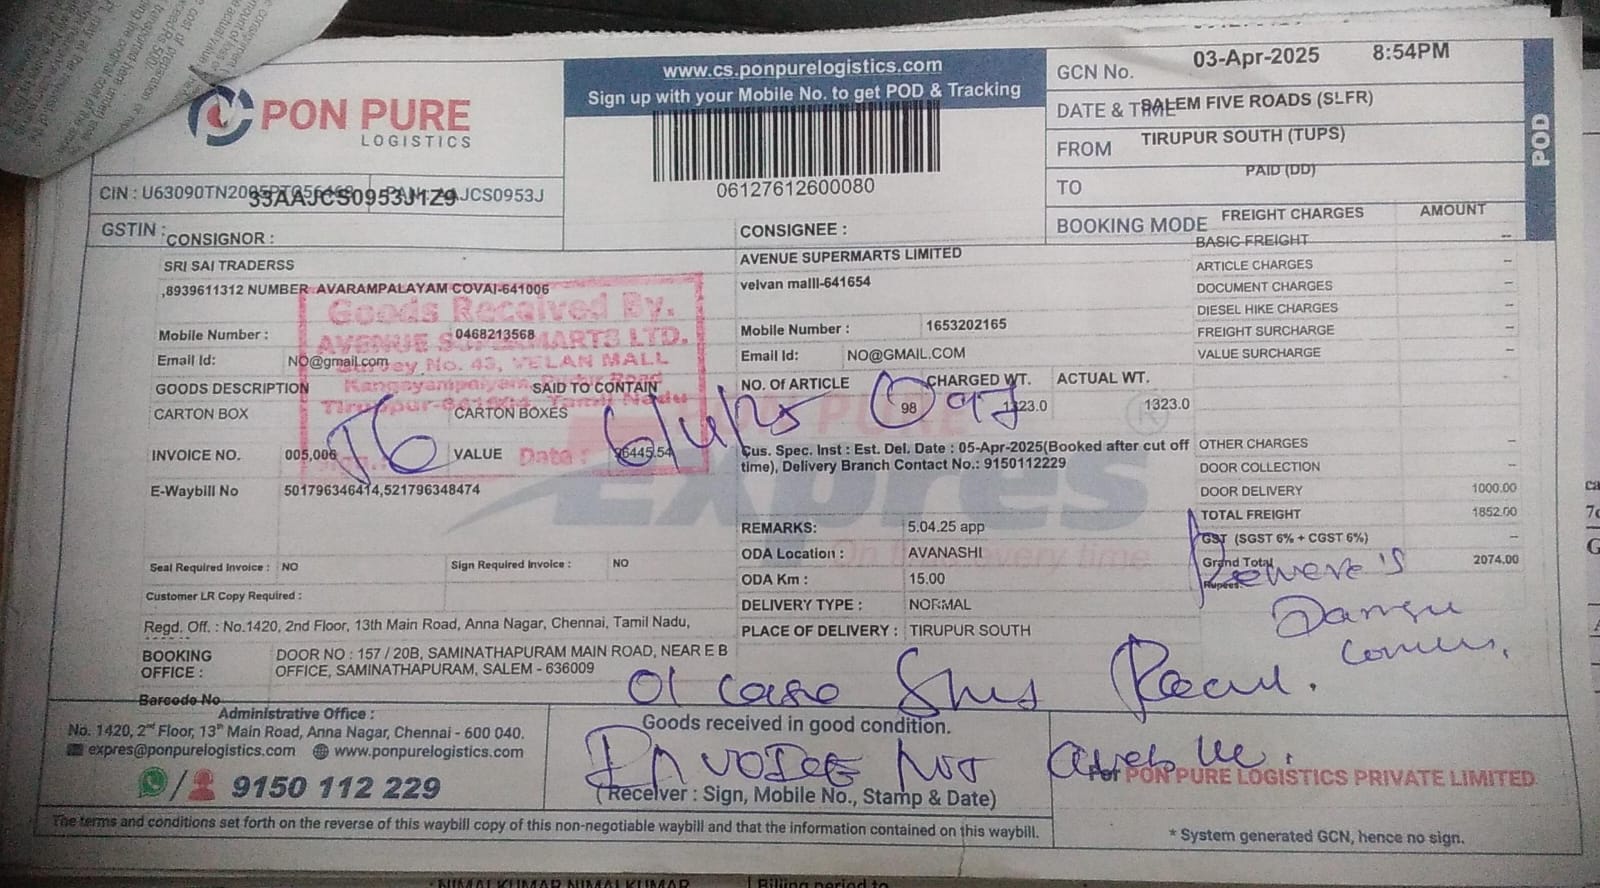 PON PURE
LOGISTICS
www.cs.ponpurelogistics.com
Sign up with your Mobile No. to get POD & Tracking
06127612600080
GCN No.
03-Apr-2025 8:54PM
DATE & TIME
SALEM FIVE ROADS (SLFR)
FROM
TIRUPUR SOUTH (TUPS)
TO
PAID (DD)
BOOKING MODE
POD
CIN : PAN : AAJCS0953J
GSTIN :
33AAJCS0953J1Z9
CONSIGNOR :
SRI SAI TRADERSS
,8939611312 NUMBER AVARAMPALAYAM COVAI-641006
Mobile Number : 0468213568
Email Id: NO@gmail.com
GOODS DESCRIPTION SAID TO CONTAIN
CARTON BOX CARTON BOXES
INVOICE NO. 005,006 VALUE 26445.54
E-Waybill No 501796346414,521796348474
Seal Required Invoice : NO Sign Required Invoice : NO
Customer LR Copy Required :
Regd. Off. : No.1420, 2nd Floor, 13th Main Road, Anna Nagar, Chennai, Tamil Nadu,
BOOKING OFFICE : DOOR NO : 157 / 20B, SAMINATHAPURAM MAIN ROAD, NEAR E B
OFFICE, SAMINATHAPURAM, SALEM - 636009
Barcode No
Goods Received By.
AVENUE SUPERMARTS LTD.
Survey No. 43, VELAN MALL
Kangayampalayam, Road
Tiruppur- Tamil Nadu
Date :
6/4/25
CONSIGNEE :
AVENUE SUPERMARTS LIMITED
velvan malll-641654
Mobile Number : 1653202165
Email Id: NO@GMAIL.COM
NO. OF ARTICLE CHARGED WT. ACTUAL WT.
98 1323.0 1323.0
97
Cus. Spec. Inst : Est. Del. Date : 05-Apr-2025(Booked after cut off
time), Delivery Branch Contact No.: 9150112229
REMARKS: 5.04.25 app
ODA Location : AVANASHI
ODA Km : 15.00
DELIVERY TYPE : NORMAL
PLACE OF DELIVERY : TIRUPUR SOUTH
Expres
On time every time
FREIGHT CHARGES AMOUNT
BASIC FREIGHT --
ARTICLE CHARGES --
DOCUMENT CHARGES --
DIESEL HIKE CHARGES --
FREIGHT SURCHARGE --
VALUE SURCHARGE --
OTHER CHARGES --
DOOR COLLECTION --
DOOR DELIVERY 1000.00
TOTAL FREIGHT 1852.00
GST (SGST 6% + CGST 6%) --
Grand Total 2074.00
Rupees:
01 case
Administrative Office :
No. 1420, 2nd Floor, 13th Main Road, Anna Nagar, Chennai - 600 040.
expres@ponpurelogistics.com www.ponpurelogistics.com
9150 112 229
Goods received in good condition.
INVOICE NOT
( Receiver : Sign, Mobile No., Stamp & Date)
For PON PURE LOGISTICS PRIVATE LIMITED
The terms and conditions set forth on the reverse of this waybill copy of this non-negotiable waybill and that the information contained on this waybill.
* System generated GCN, hence no sign.
NIMALKUMAR NIMALKUMAR Billing period to